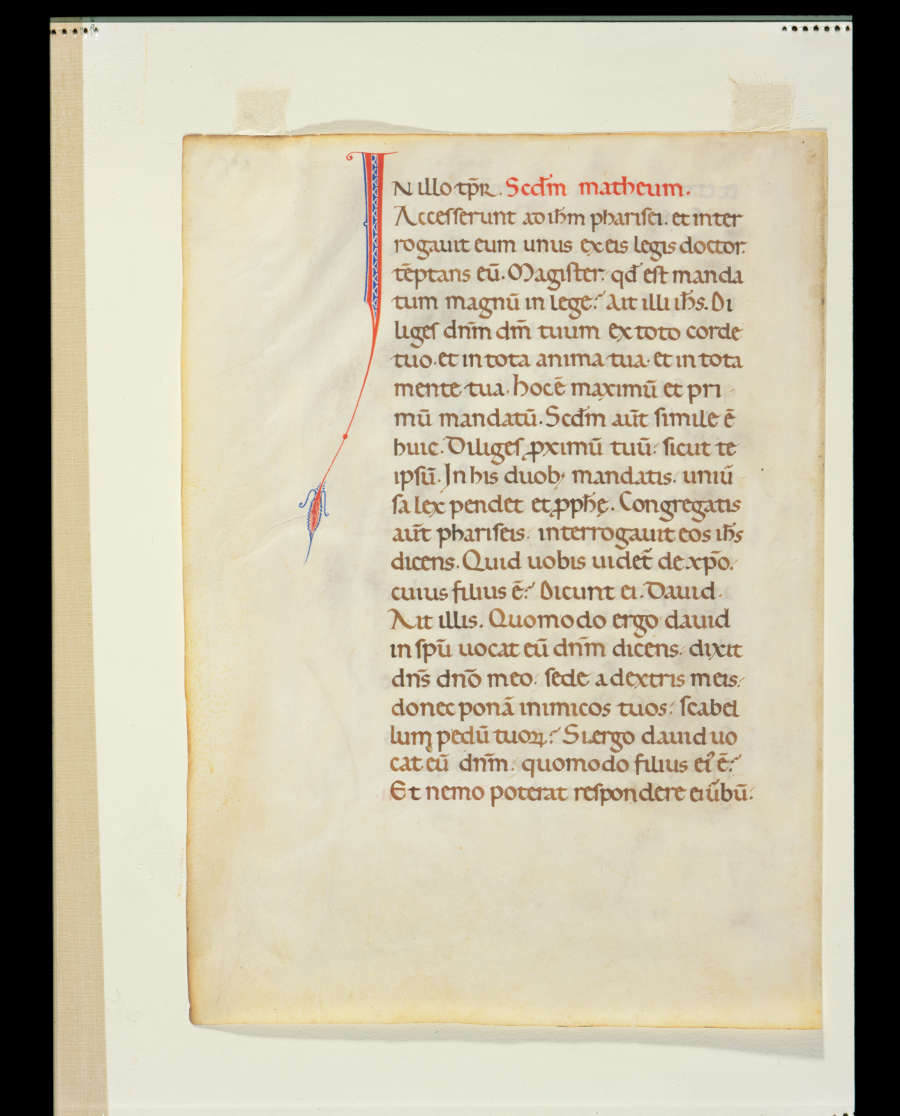 IN illo tp̄r. Scd̄m matheum.
Accesserunt ad ih̄m pharisei. et inter
rogauit eum unus ex eis legis doctor.
tēptans eū. Magister. qd̄ est manda
tum magnū in lege? Ait illi ih̄s. Di
liges dn̄m dm̄ tuum ex toto corde
tuo. et in tota anima tua. et in tota
mente tua. hoc ē maximū et pri
mū mandatū. Scd̄m aūt simile ē
huic. Diliges ꝓximū tuū. sicut te
ipsū. In his duob; mandatis. uniū
sa lex pendet et ꝓph̄ę. Congregatis
aūt phariseis. interrogauit eos ih̄s
dicens. Quid uobis uidet̄ de xp̄o.
cuius filius ē? Dicunt ei. Dauid.
Ait illis. Quomodo ergo dauid
in sp̄u uocat eū dn̄m dicens. dixit
dn̄s dn̄o meo. sede a dextris meis.
donec ponā inimicos tuos. scabel
lum pedū tuoꝝ? Si ergo dauid uo
cat eū dn̄m. quomodo filius ei᾽ ē?
Et nemo poterat respondere ei ūbū.